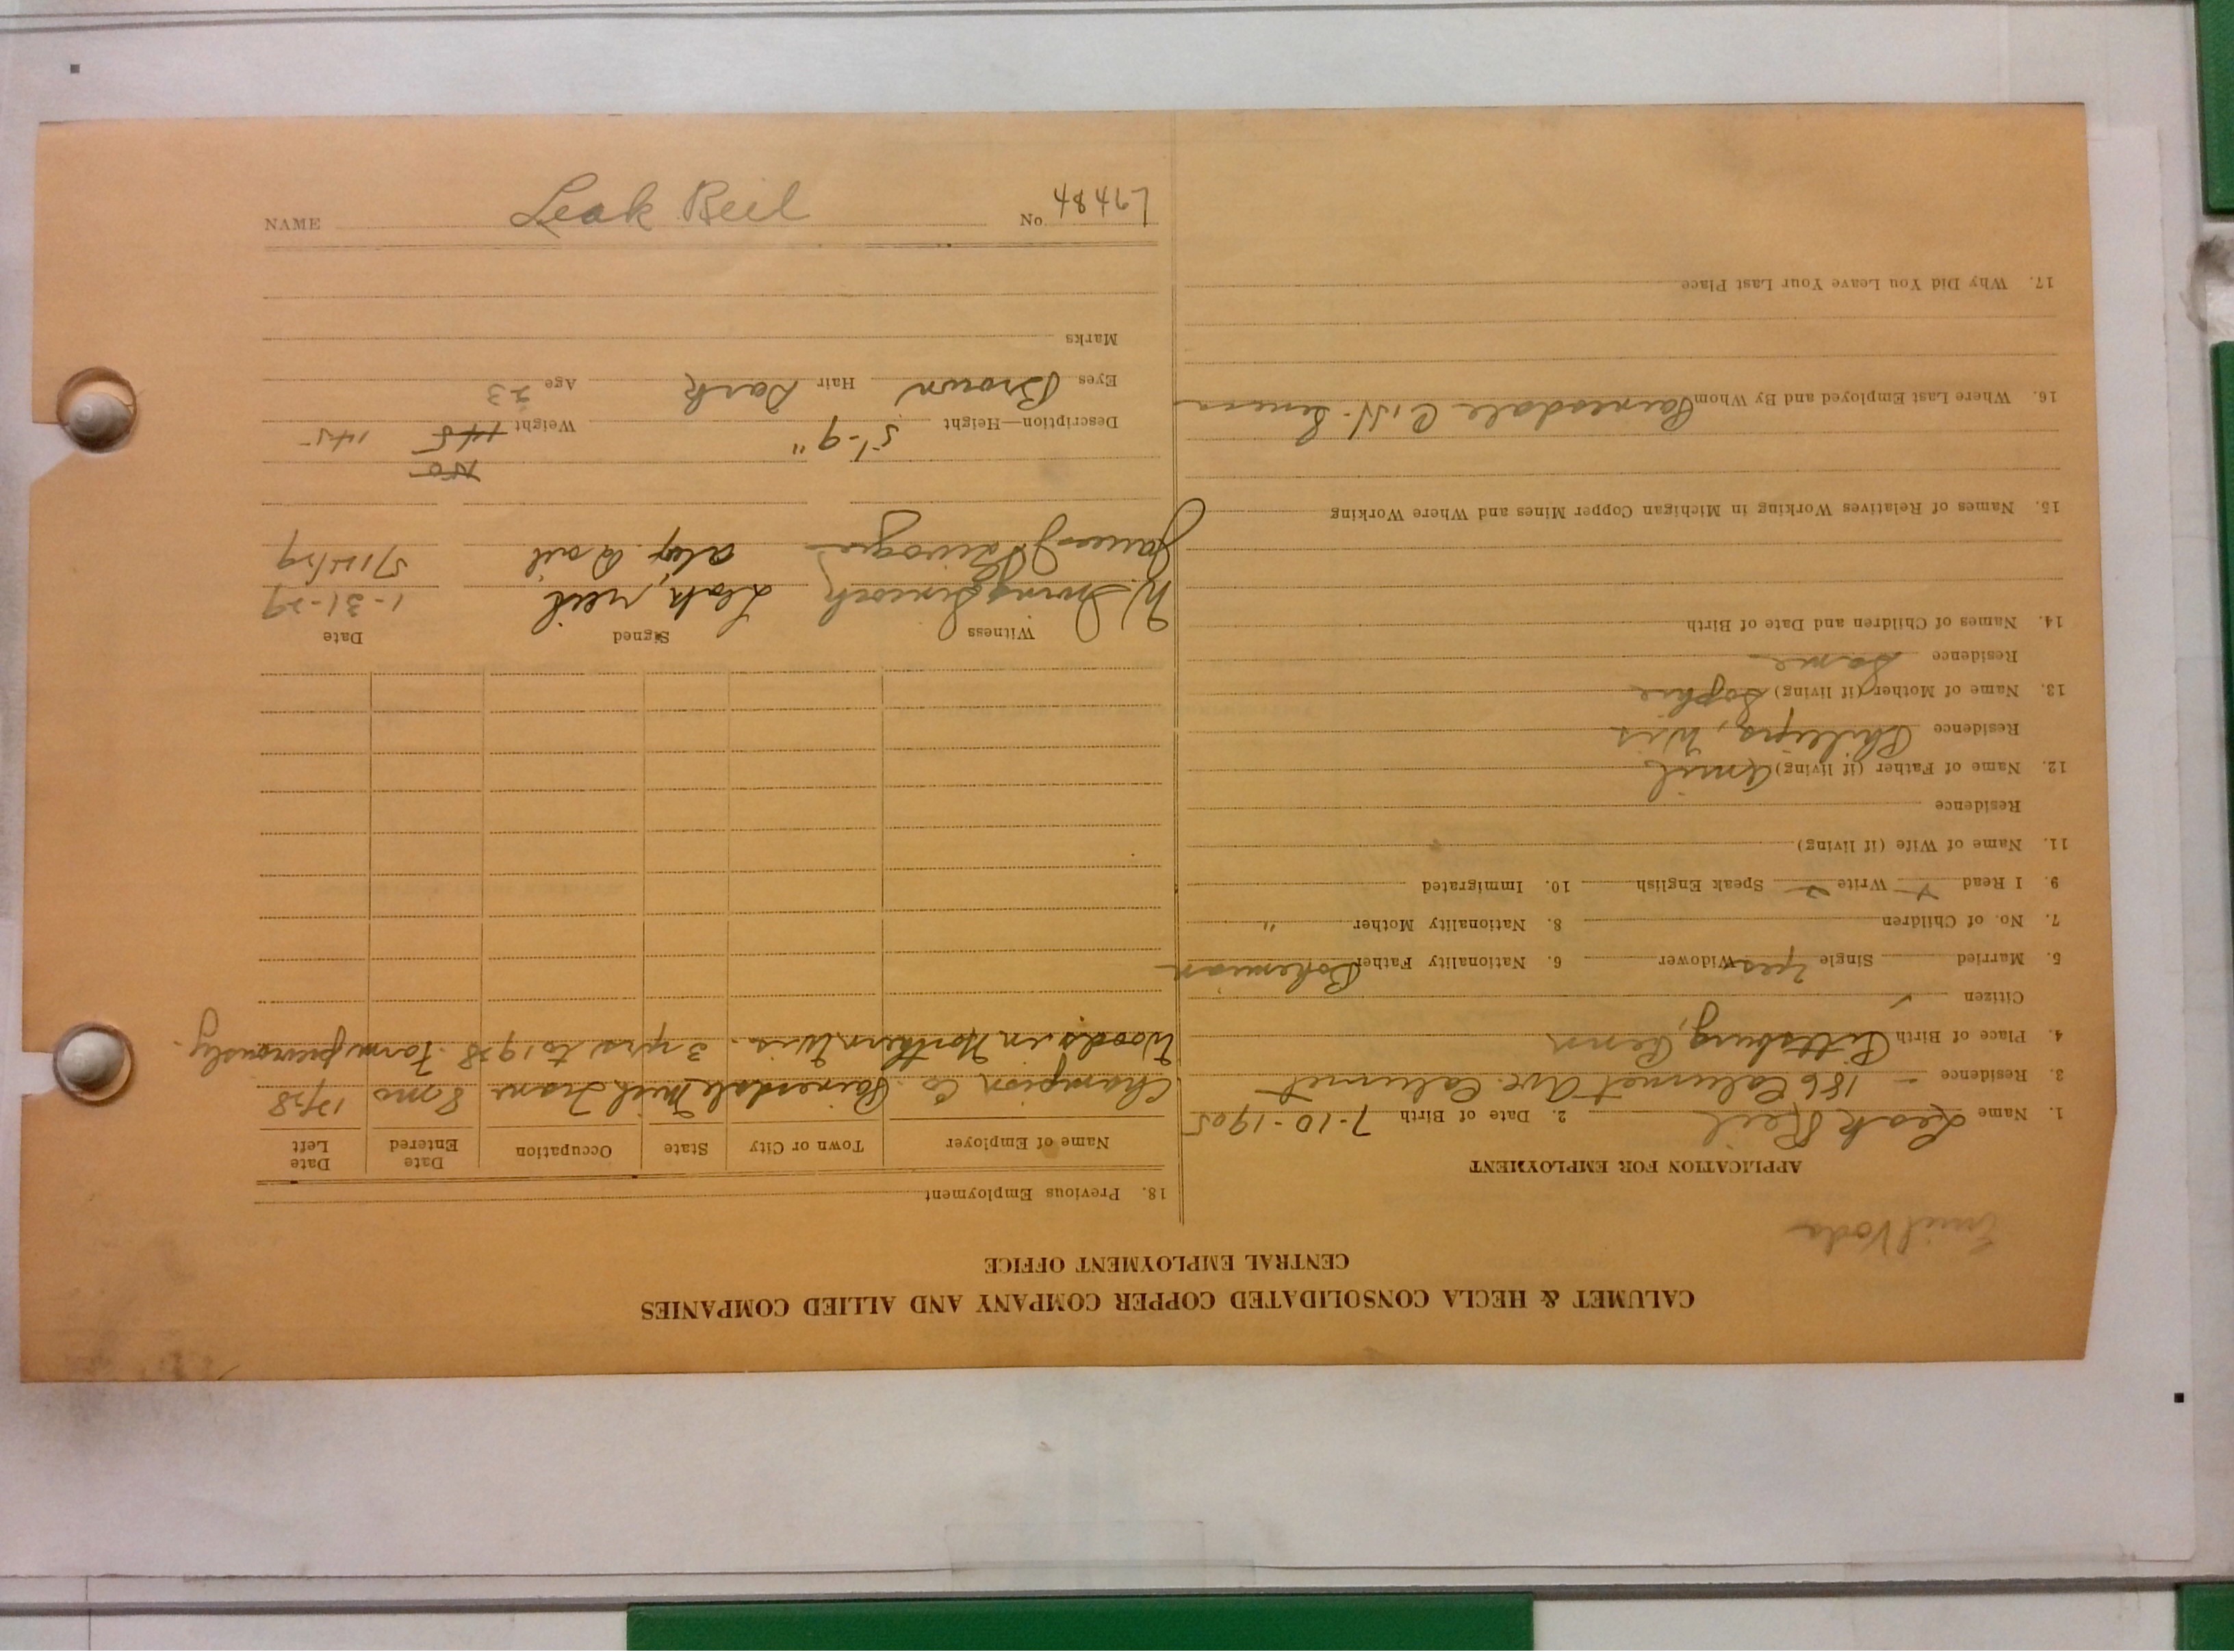 CALUMET & HECLA CONSOLIDATED COPPER COMPANY AND ALLIED COMPANIES
CENTRAL EMPLOYMENT OFFICE
Emil Voda
APPLICATION FOR EMPLOYMENT
1. Name Leak Reil 2. Date of Birth 7-10-1905
3. Residence - 186 Calumet Ave. Calumet
4. Place of Birth Pittsburg, Penn
Citizen ✓
5. Married Single Yes Widower 6. Nationality Father Bohemian
7. No. of Children 8. Nationality Mother "
9. I Read Write Speak English 10. Immigrated
11. Name of Wife (if living)
Residence
12. Name of Father (if living) Amil
Residence Philips, Wis
13. Name of Mother (if living) Sophie
Residence Same
14. Names of Children and Date of Birth
15. Names of Relatives Working in Michigan Copper Mines and Where Working
16. Where Last Employed and By Whom Painesdale C.H. Seneca
17. Why Did You Leave Your Last Place
18. Previous Employment
Name of Employer Town or City State Occupation Date Entered Date Left
Champion Co. Painesdale Mich Tram 8 mo 12/28
Woods in Northern Wis. 3 yrs to 1928 Farm previously.
Witness Signed Date
W. Irving Leak, reil 1-31-29
James 5/14/29
150
Description—Height 5'-9" Weight 145 145
Eyes Brown Hair Dark Age 23
Marks
NAME Leak Reil No 48467